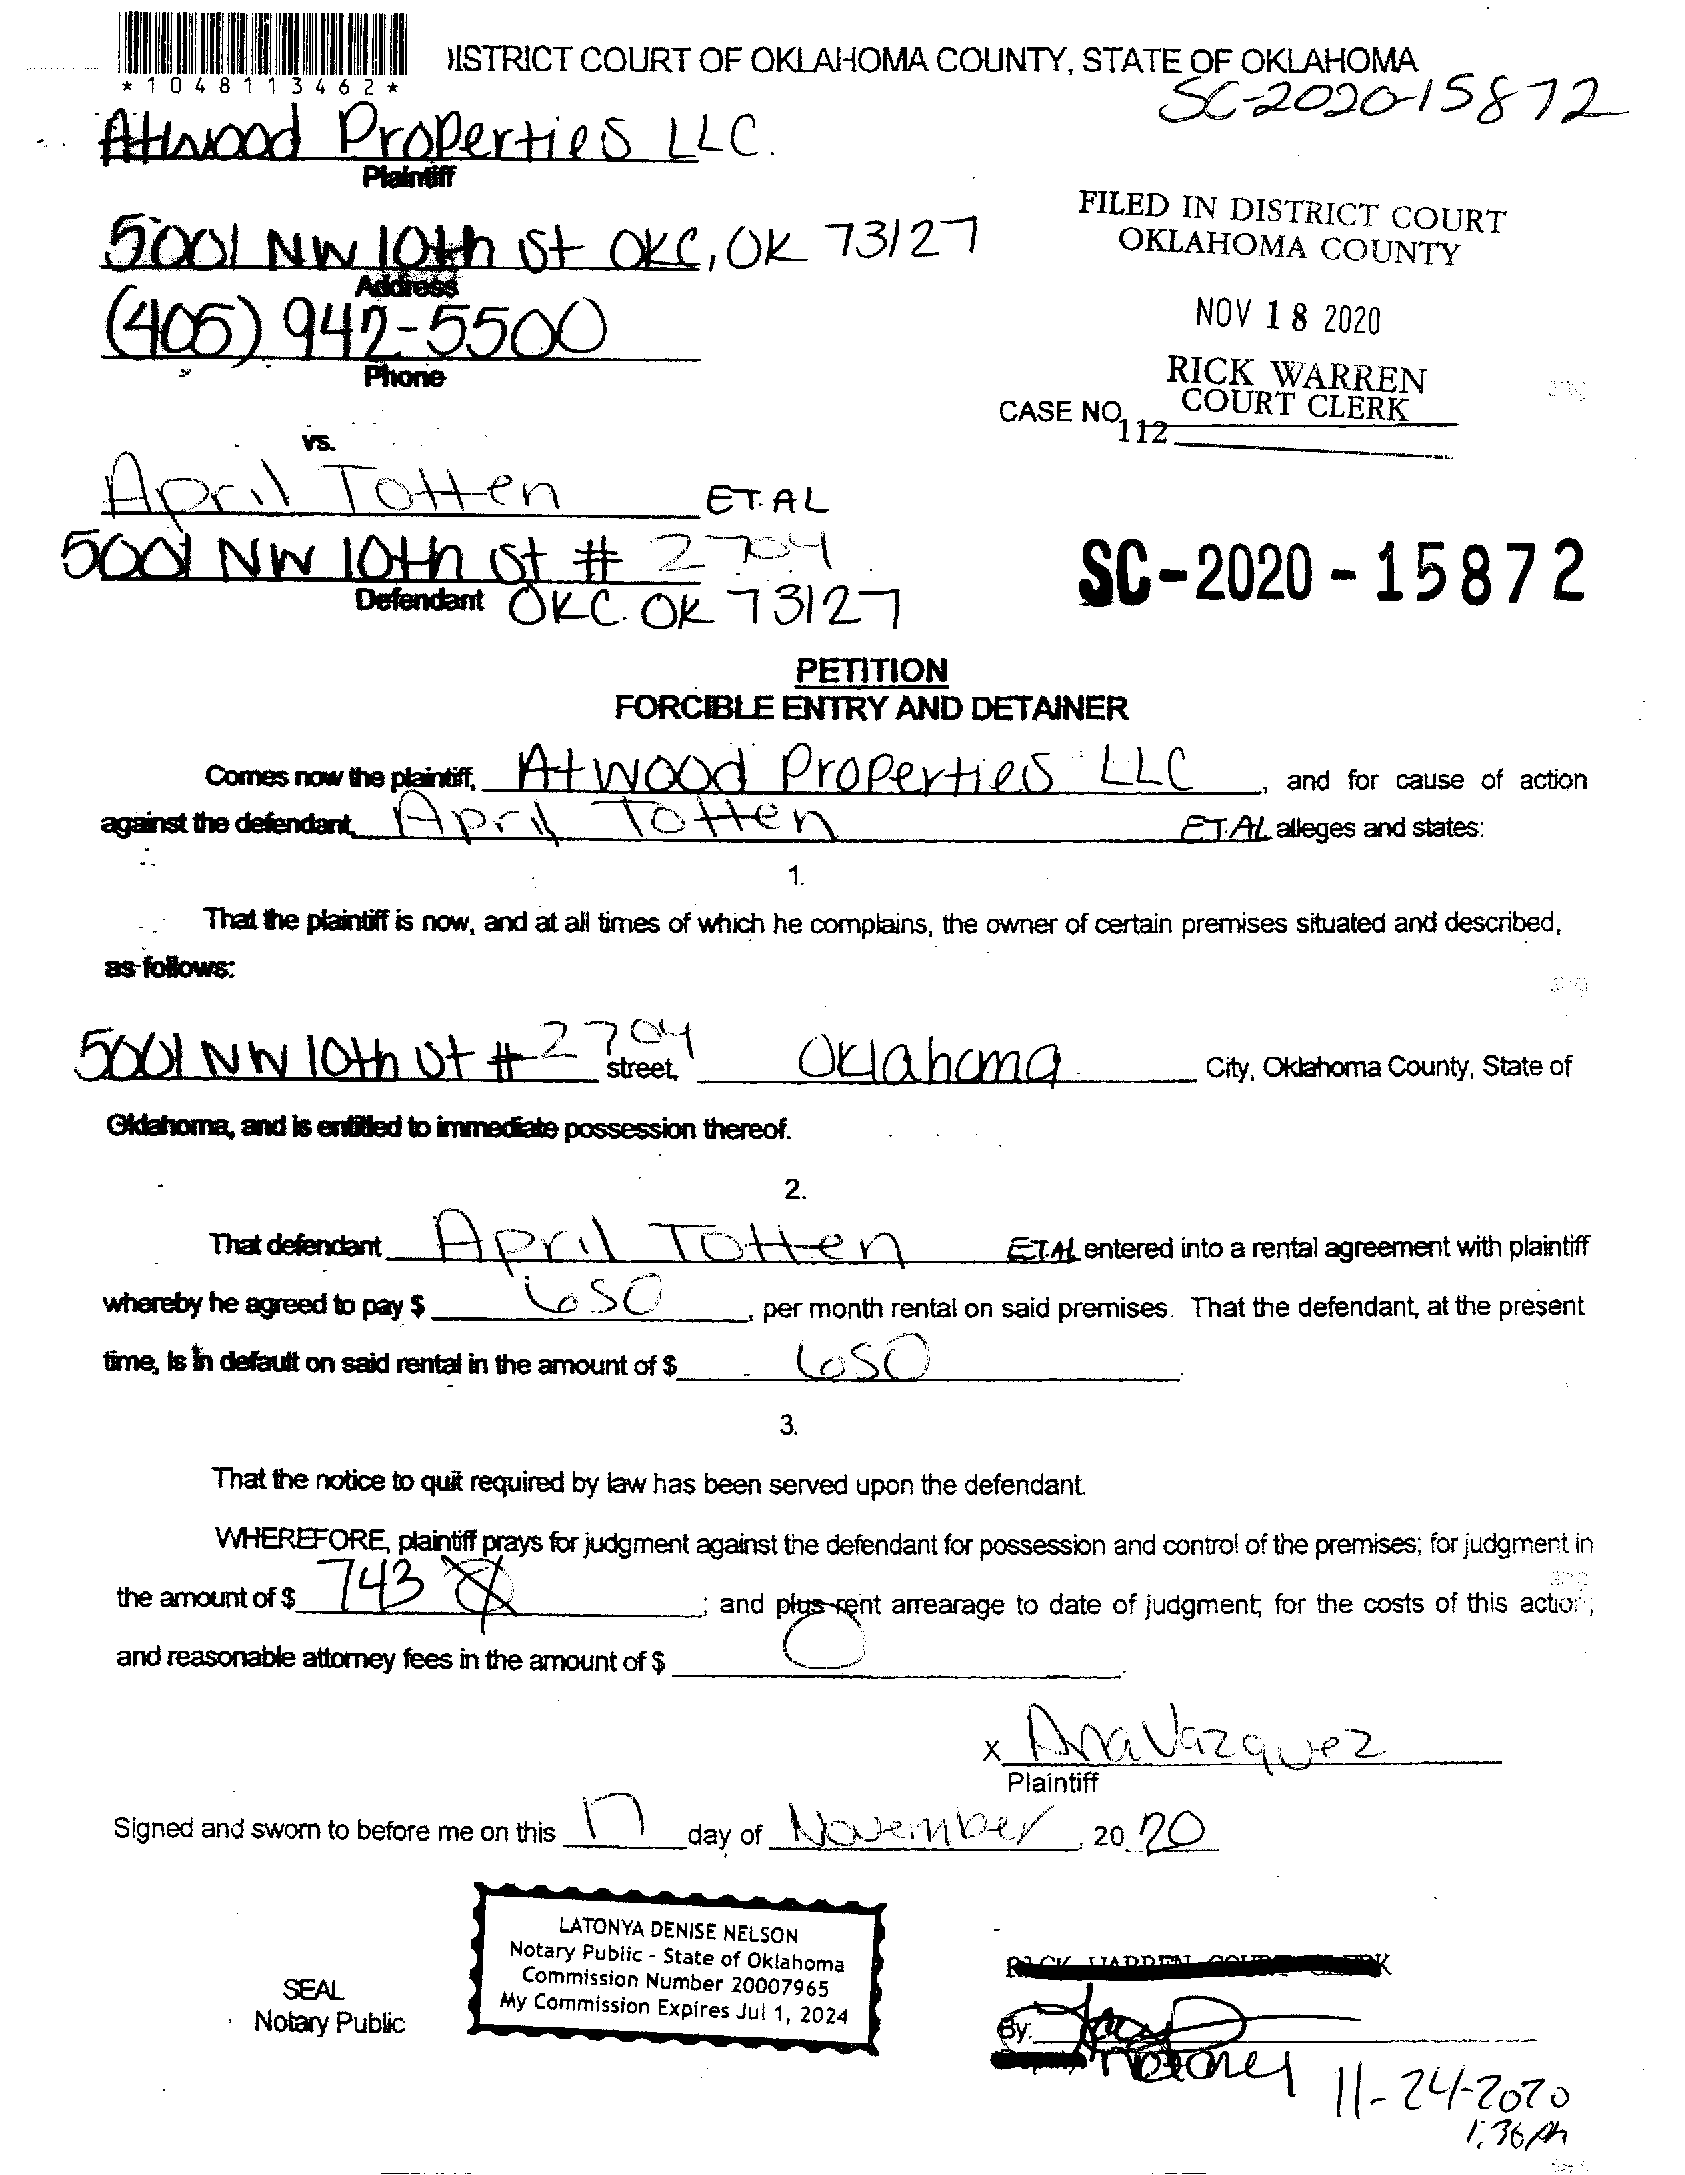 *1048113462*
DISTRICT COURT OF OKLAHOMA COUNTY, STATE OF OKLAHOMA
SC-2020-15872
Atwood Properties LLC.
Plaintiff
5001 NW 10th St OKC, OK 73127
Address
(405) 942-5500
Phone
FILED IN DISTRICT COURT
OKLAHOMA COUNTY
NOV 18 2020
RICK WARREN
COURT CLERK
CASE NO.
112
vs.
April Totten ET.AL
5001 NW 10th St # 2704
Defendant OKC. OK 73127
SC-2020-15872
PETITION
FORCIBLE ENTRY AND DETAINER
Comes now the plaintiff, Atwood Properties LLC, and for cause of action
against the defendant, April Totten ET.AL alleges and states:
1.
That the plaintiff is now, and at all times of which he complains, the owner of certain premises situated and described,
as follows:
5001 NW 10th St # 2704 street, Oklahoma City, Oklahoma County, State of
Oklahoma, and is entitled to immediate possession thereof.
2.
That defendant April Totten ET.AL entered into a rental agreement with plaintiff
whereby he agreed to pay $ 650, per month rental on said premises. That the defendant, at the present
time, is in default on said rental in the amount of $ 650
3.
That the notice to quit required by law has been served upon the defendant.
WHEREFORE, plaintiff prays for judgment against the defendant for possession and control of the premises; for judgment in
the amount of $ 743; and plus rent arrearage to date of judgment; for the costs of this action;
and reasonable attorney fees in the amount of $ 0
x Ana Vazquez
Plaintiff
Signed and sworn to before me on this 17 day of November, 2020
LATONYA DENISE NELSON
Notary Public - State of Oklahoma
Commission Number 20007965
My Commission Expires Jul 1, 2024
SEAL
Notary Public
RICK WARREN COURT CLERK
By:
notary
11-24-2020
1:36 PM